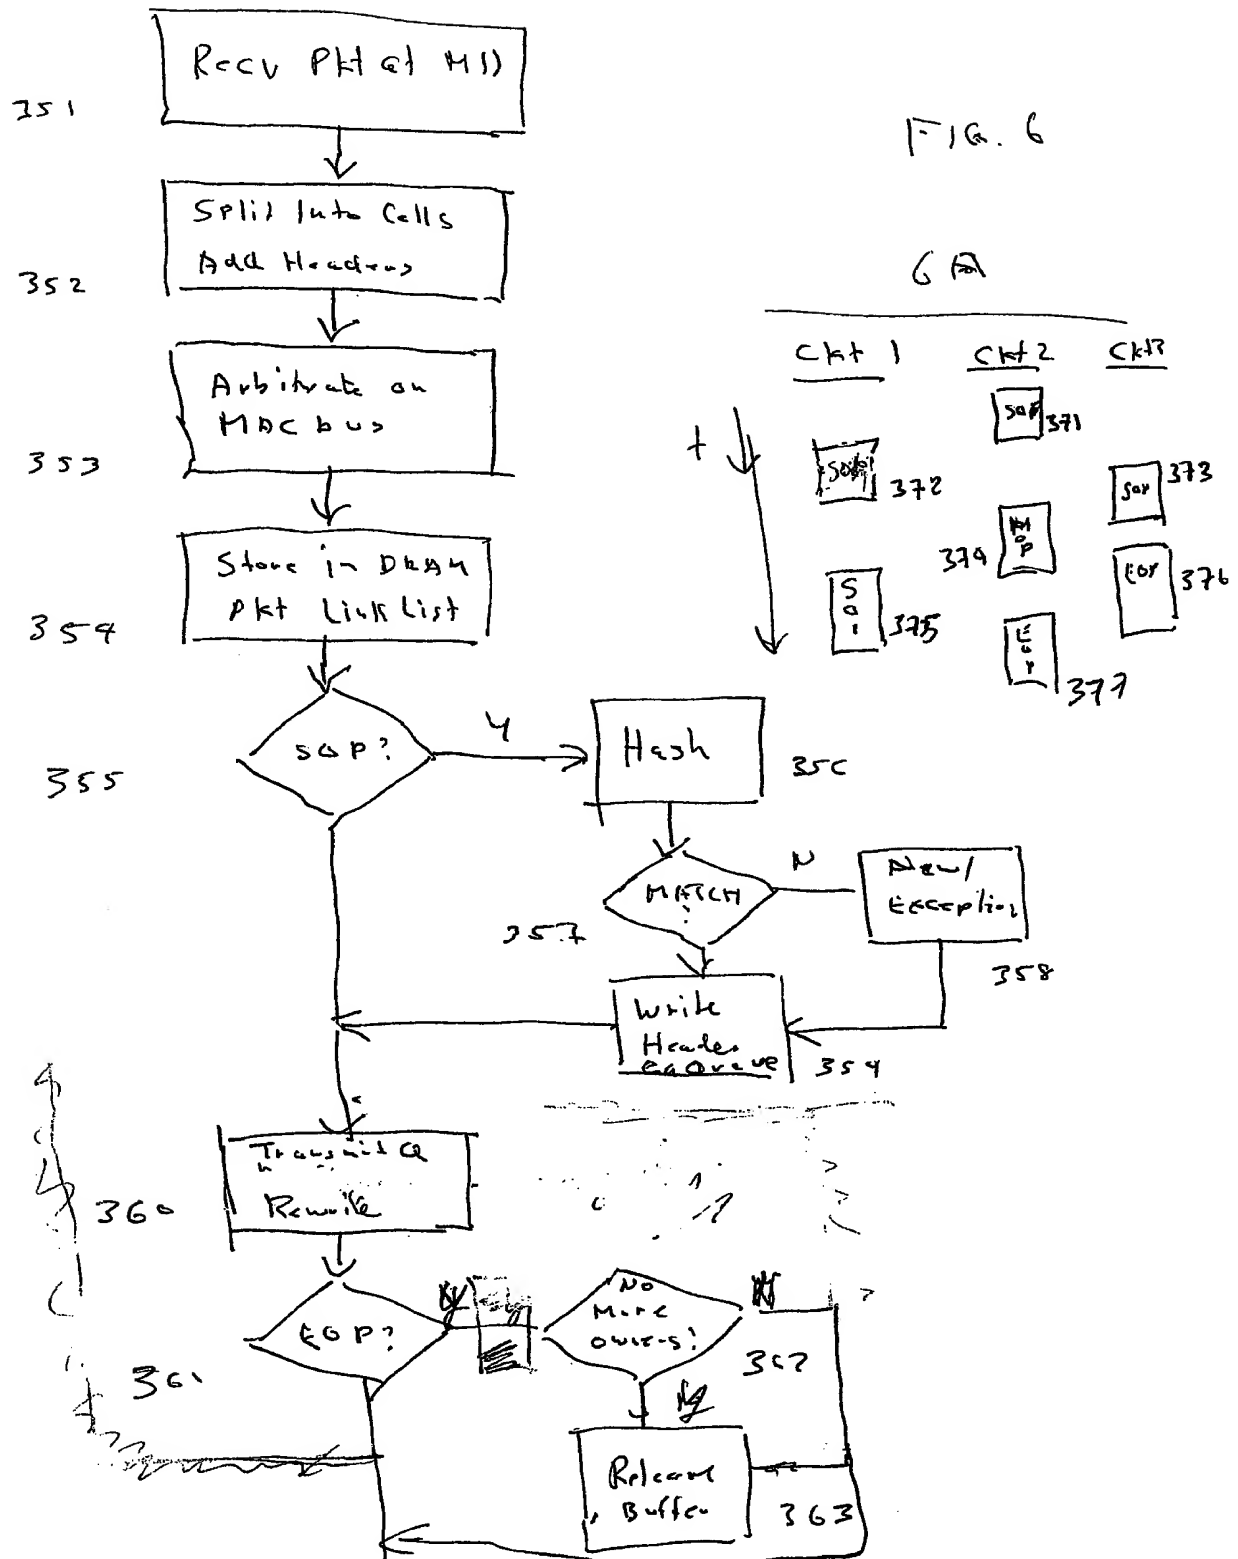 Recv Pkt at MID
351
FIG. 6
Split Into Cells
Add Headers
352
6A
Ckt 1
Ckt 2
Ckt3
SOP
371
t
Arbitrate on
MAC bus
353
372
SOP
373
374
EOP
376
375
377
Store in DRAM
Pkt Link List
354
SOP?
Y
355
Hash
356
MATCH
?
N
357
New/
Exception
358
Write
Header
enQueue
359
Transmit Q
Rewrite
360
EOP?
361
No
More
owners?
362
Release
Buffer
363